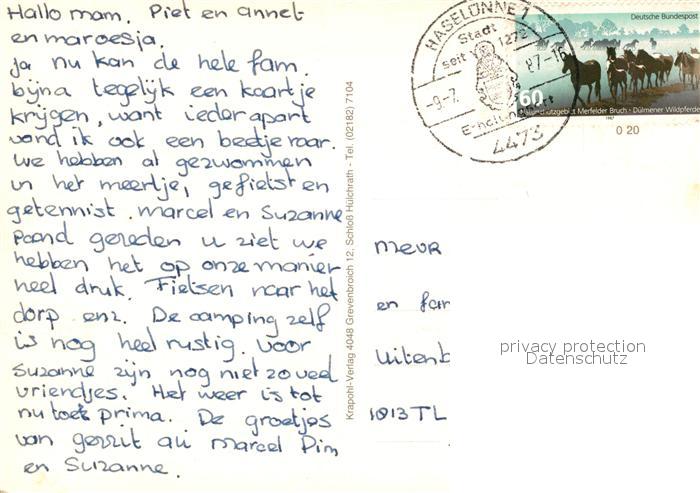 Hallo mam. Piet en annet
en maroesja.
ja nu kan de hele fam.
bijna tegelijk een kaartje
krijgen, want ieder apart
vond ik ook een beetje raar.
we hebben al gezwommen
in het meertje, gefietst en
getennist. marcel en Suzanne
paard gereden u ziet we
hebben het op onze manier
heel druk. Fietsen naar het
dorp enz. De camping zelf
is nog heel rustig. voor
Suzanne zijn nog niet zo veel
vriendjes. Het weer is tot
nu toe prima. De groetjes
van gerrit au Marcel Pim
en Suzanne.
Krapohl-Verlag 4048 Grevenbroich 12, Schloß Hülchrath - Tel. (02182) 7104
HASELÜNNE 1
Stadt
seit 1272
-9-7. 87-15
Erholungsort
4473
Deutsche Bundespost
60
Naturschutzgebiet Merfelder Bruch - Dülmener Wildpferde
1987
0 20
MEUR
en fam
Uitenb
1813TL
privacy protection
Datenschutz